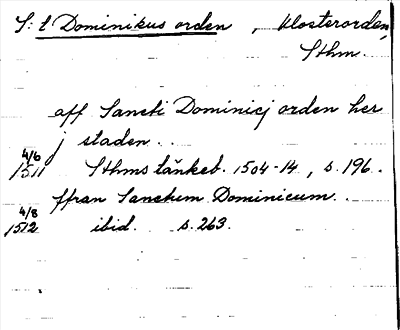 S:t Dominikus orden, klosterorden,
Sthm.
aff Sancti Dominicj orden her
j staden..
4/6 1511 Sthms tänkeb. 1504-14, s. 196.
ffran Sanctum Dominicum..
4/8 1512 ibid. s. 263.